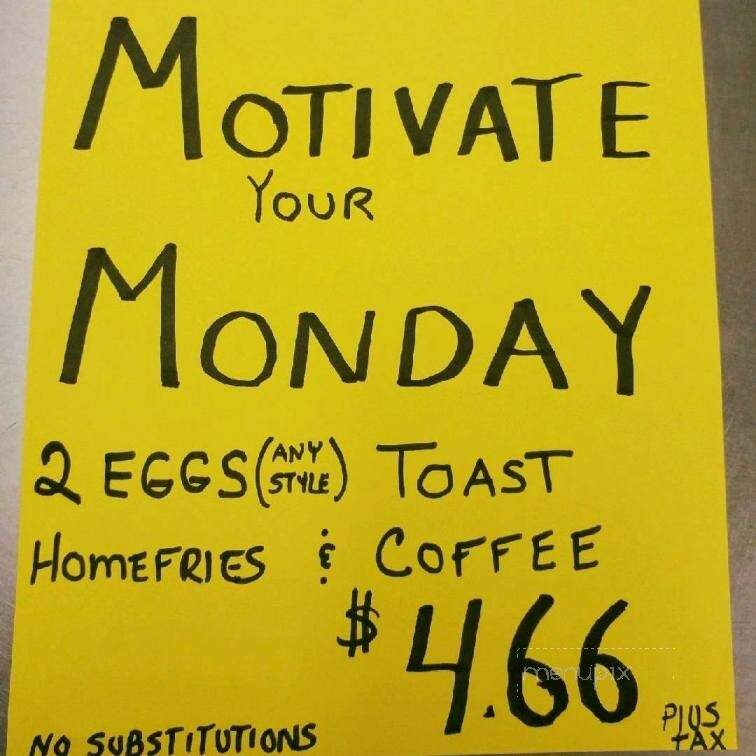 MOTIVATE
YOUR
MONDAY
2 EGGS (ANY STYLE) TOAST
HOMEFRIES & COFFEE
$4.66
PLUS TAX
NO SUBSTITUTIONS
menupix